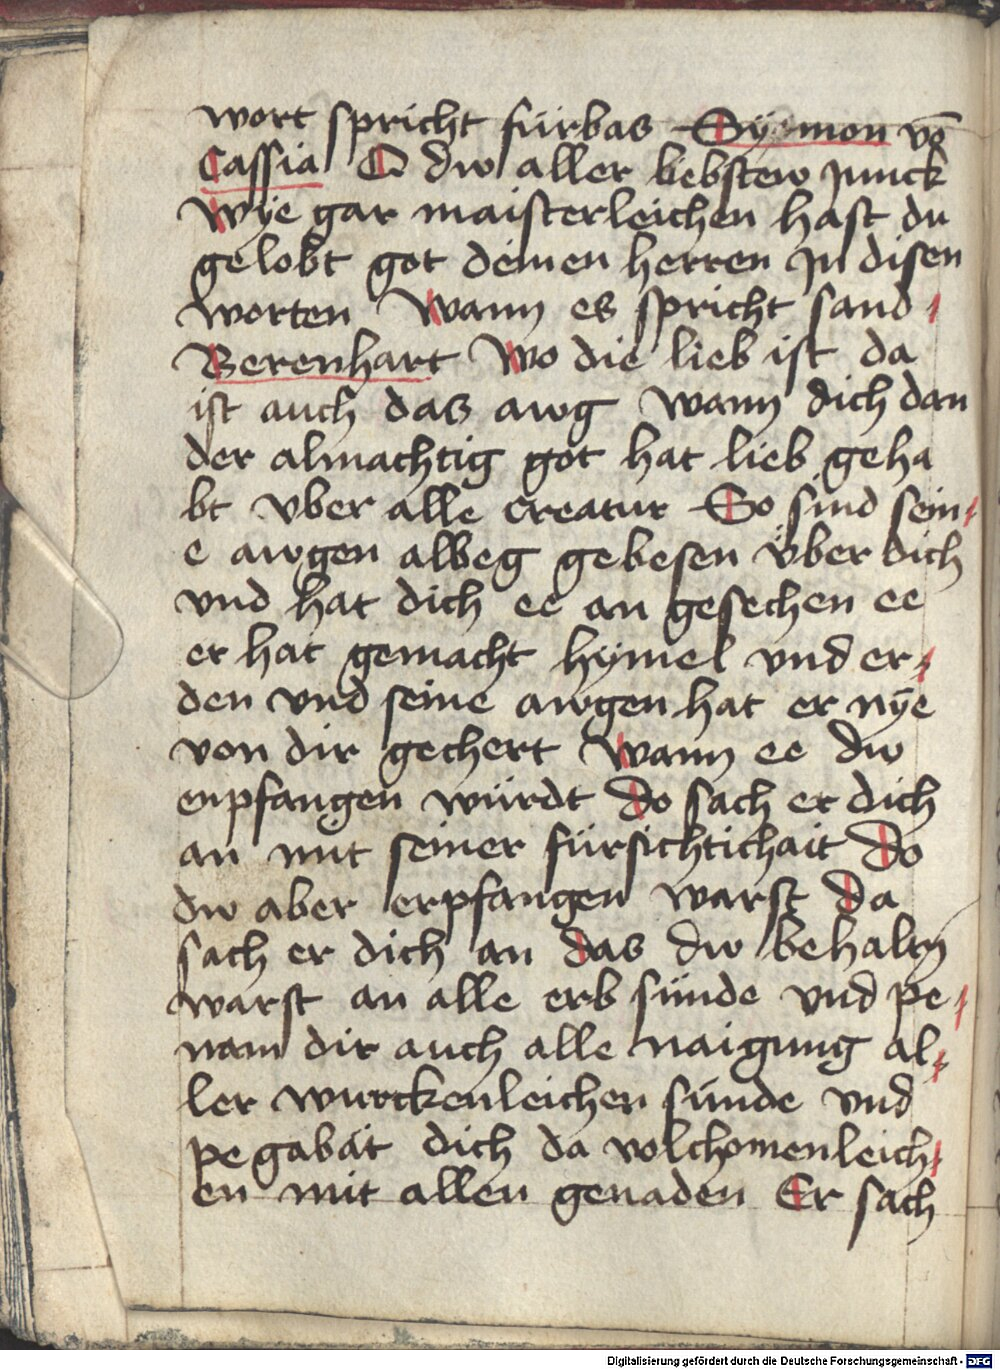 wort spricht fürbas Sÿmon vō
Cassia O dw aller liebstew junck
Wÿe gar maisterleichen hast du
gelobt got deinen herren Jn disen
worten Wann es spricht sand
Berenhart Wo die lieb ist da
ist auch das awg wann dich dan
der almachtig got hat lieb geha
bt vber alle creatur So sind sein
e awgen albeg gebesen vber dich
vnd hat dich ee an gesechen ee
er hat gemacht hÿmel vnd er
den vnd seine awgen hat er nÿe
von dir gechert Wann ee dw
enpfangen würdt do sach er dich
an mit seiner fürsichtichait Do
dw aber enpfangen warst da
sach er dich an das dw behaltn
warst an alle erb sünde vnd pe
nam dir auch alle naigung al
ler wurckenleichen sünde vnd
pegabät dich da volchomenleich
en mit allen genaden Er sach
Digitalisierung gefördert durch die Deutsche Forschungsgemeinschaft - DFG